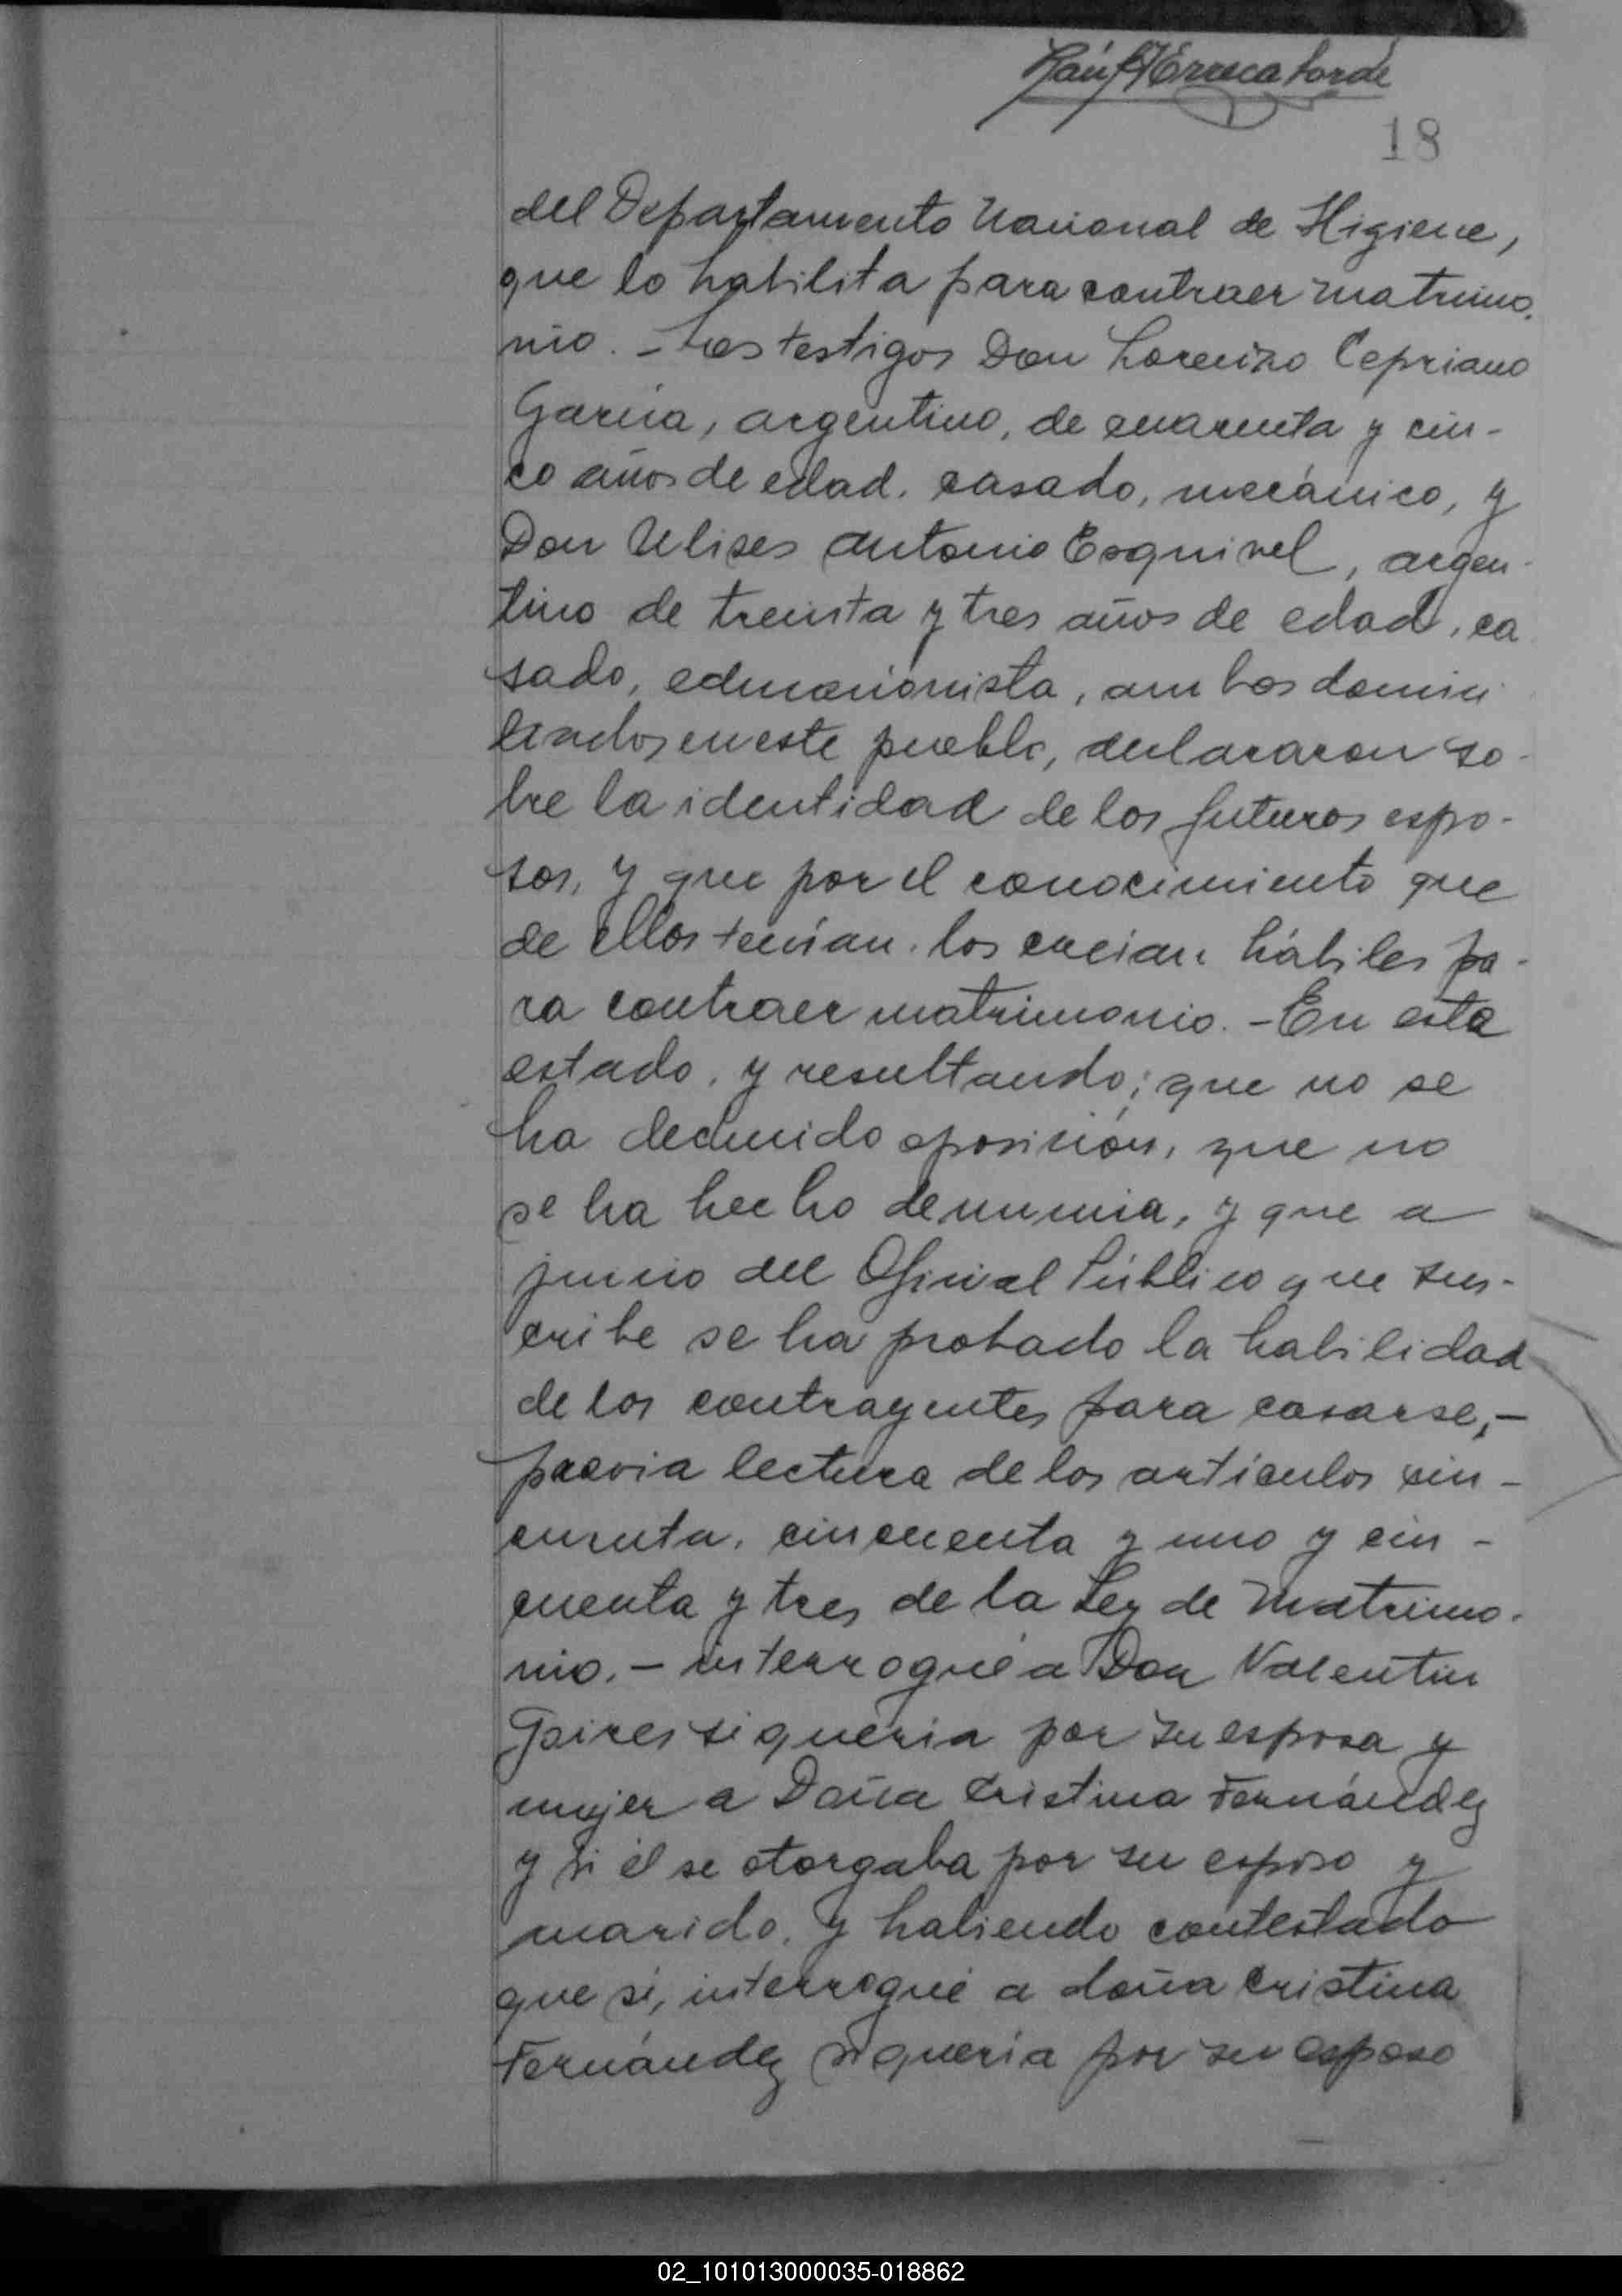 Raúl Errecalorde
18
del Departamento Nacional de Higiene,
que lo habilita para contraer matrimo-
nio. - Los testigos Don Lorenzo Cepriano
Garcia, argentino, de cuarenta y cin-
co años de edad, casado, mecánico, y
Don Ulises Antonio Esquivel, argen-
tino de treinta y tres años de edad, ca
sado, educacionista, ambos domici
liados en este pueblo, declararon so-
bre la identidad de los futuros espo-
sos, y que por el conocimiento que
de ellos tenían, los creian hábiles pa-
ra contraer matrimonio. - En este
estado, y resultando; que no se
ha deducido oposición, que no
se ha hecho denuncia, y que a
juicio del Oficial Público que sus-
cribe se ha probado la habilidad
de los contrayentes para casarse, -
previa lectura de los artículos cin-
cuenta, cincuenta y uno y cin-
cuenta y tres de la Ley de Matrimo-
nio. - interrogué a Don Valentin
Goires si queria por su esposa y
mujer a Doña Cristina Fernández
y si él se otorgaba por su esposo y
marido, y habiendo contestado
que si, interrogué a doña Cristina
Fernández si quería por su esposo
02_101013000035-018862